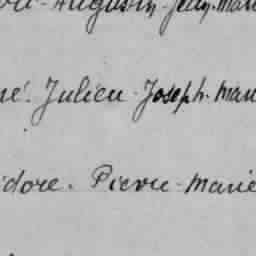 Augustin Jean Mari
né. Julien Joseph. Mari
idore. Pierre Marie